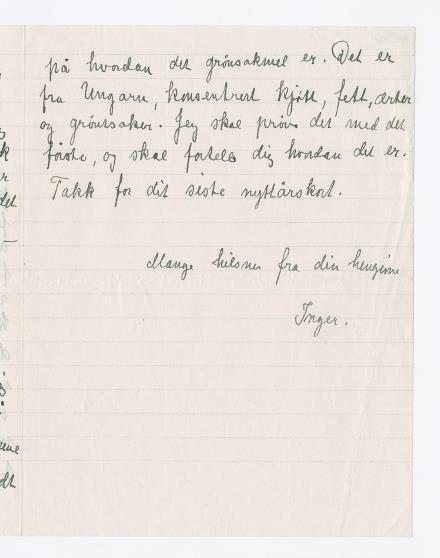 på hvordan det grønsakmel er. Det er
fra Ungarn, konsentrert kjøtt, fett, erter
og grøntsaker. Jeg skal prøve det med det
første, og skal fortelle dig hvordan det er.
Takk for dit siste nyttårskort.
Mange hilsner fra din hengivne
Inger.